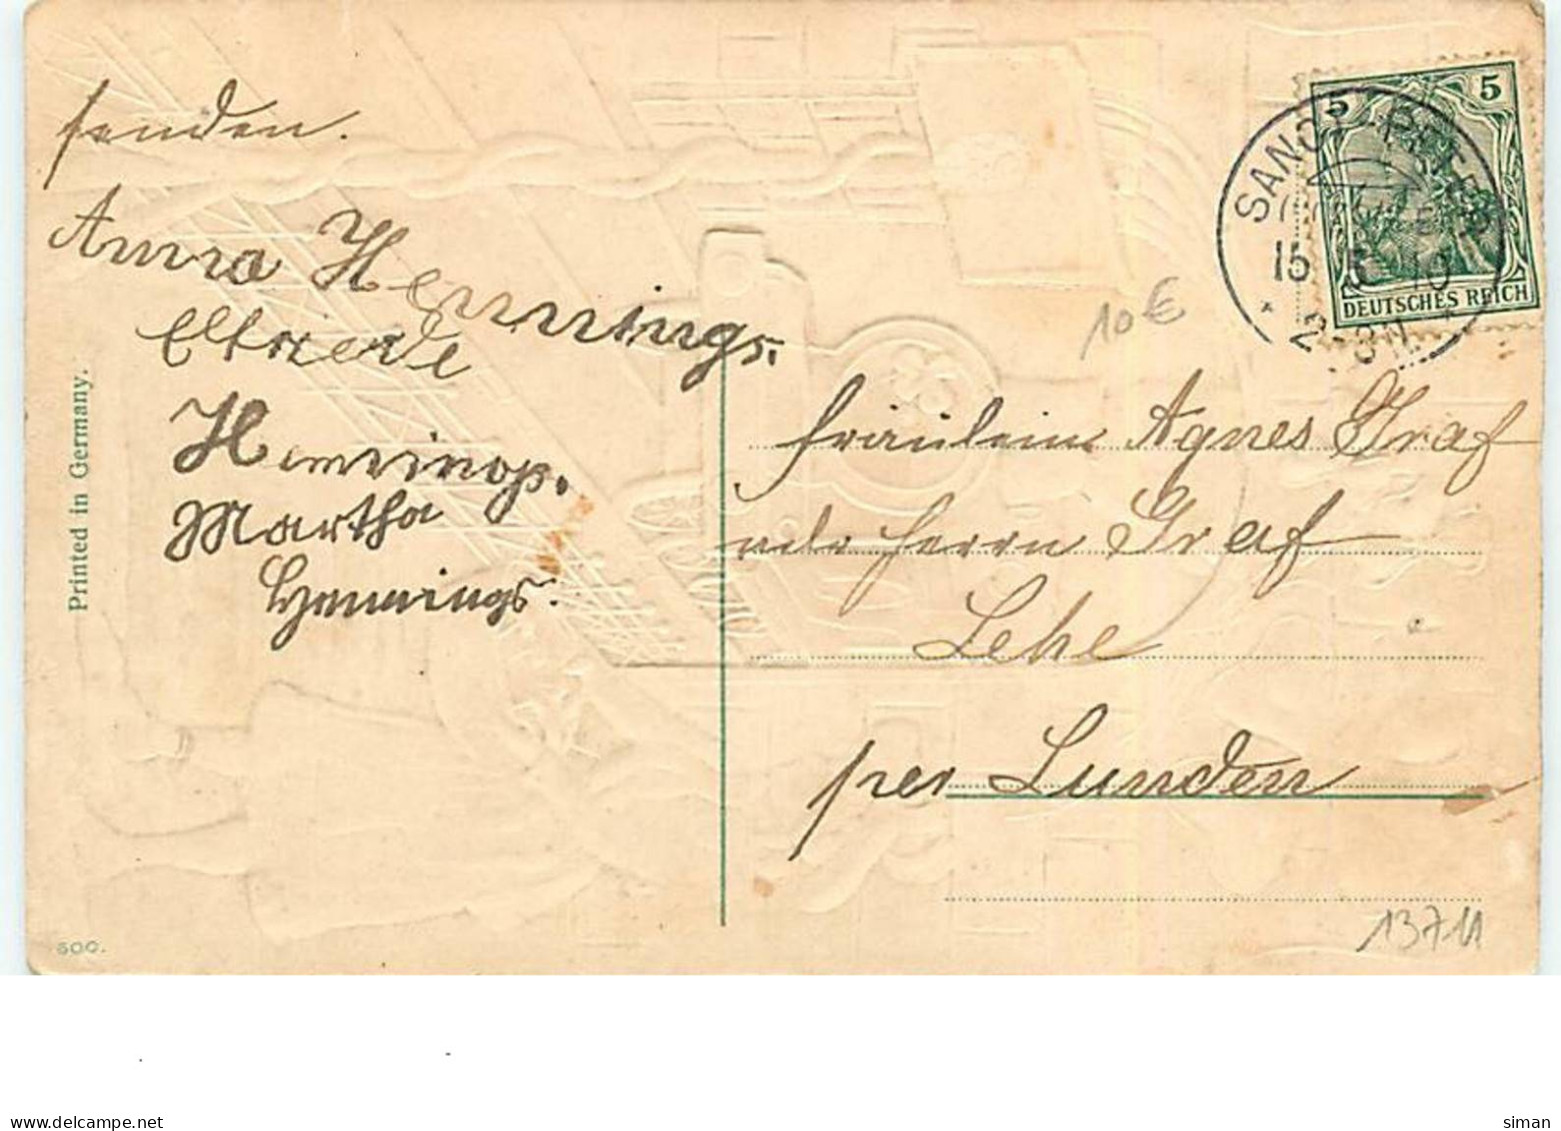 senden.
Anna Hennings.
Elfriede
Hennings.
Martha
Hennings.
Printed in Germany.
600.
10€
5 5
DEUTSCHES REICH
SANCT PETER
15 3 10
Fräulein Agnes Graf
adr Herrn Graf
Lehe
per Lunden
13711
delcampe.net
siman